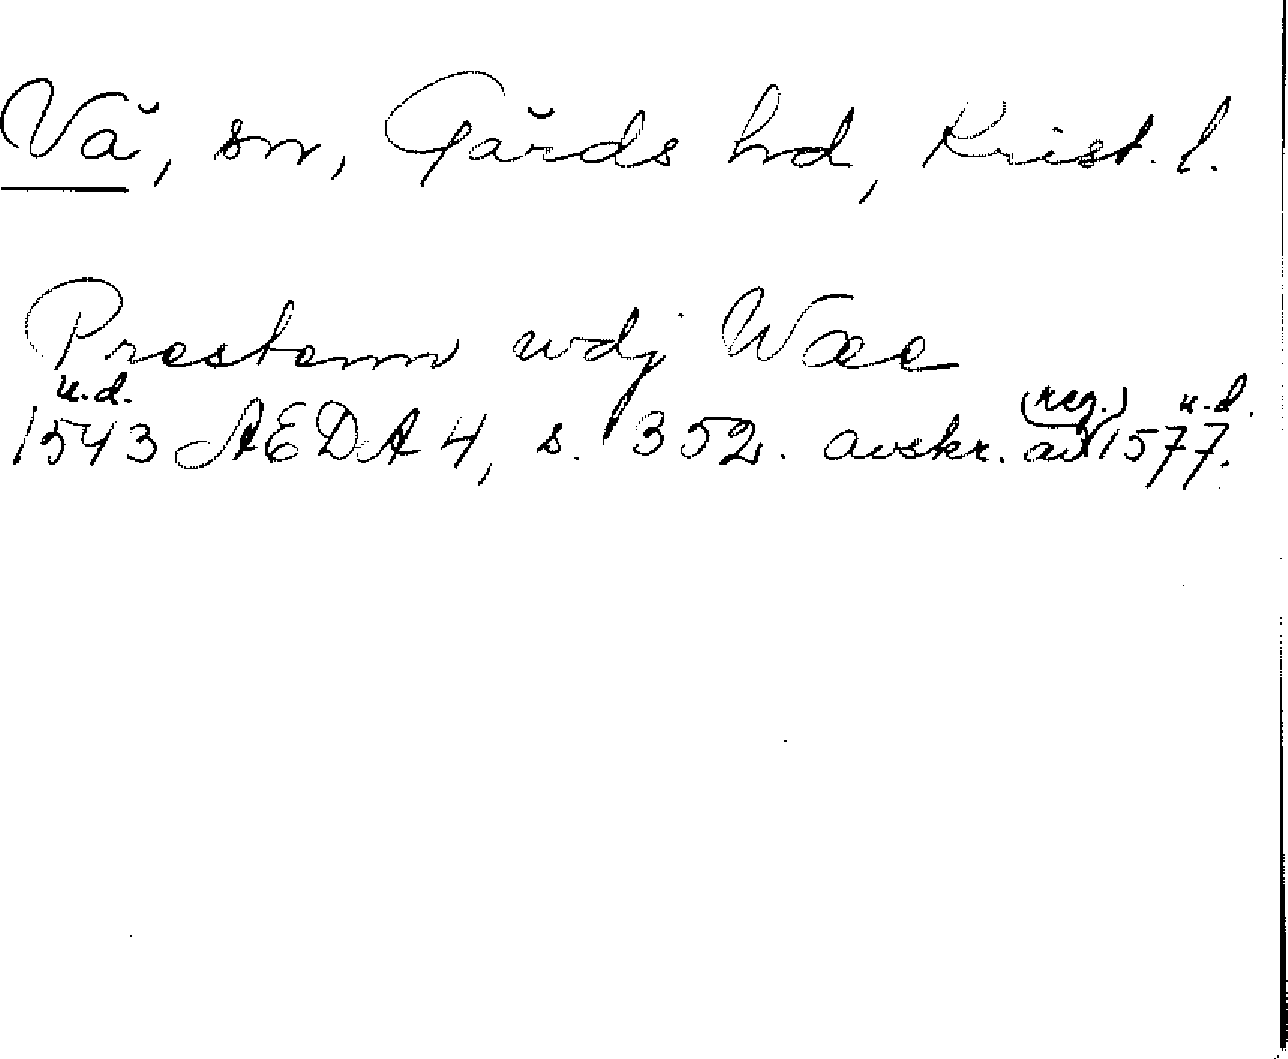 Vå, sn, Gärds hd, Krist. l.
Prestenn wdj Waee
u.d. (reg.) u.d.
1543 AEDA 4, s. 352. avskr. av 1577.